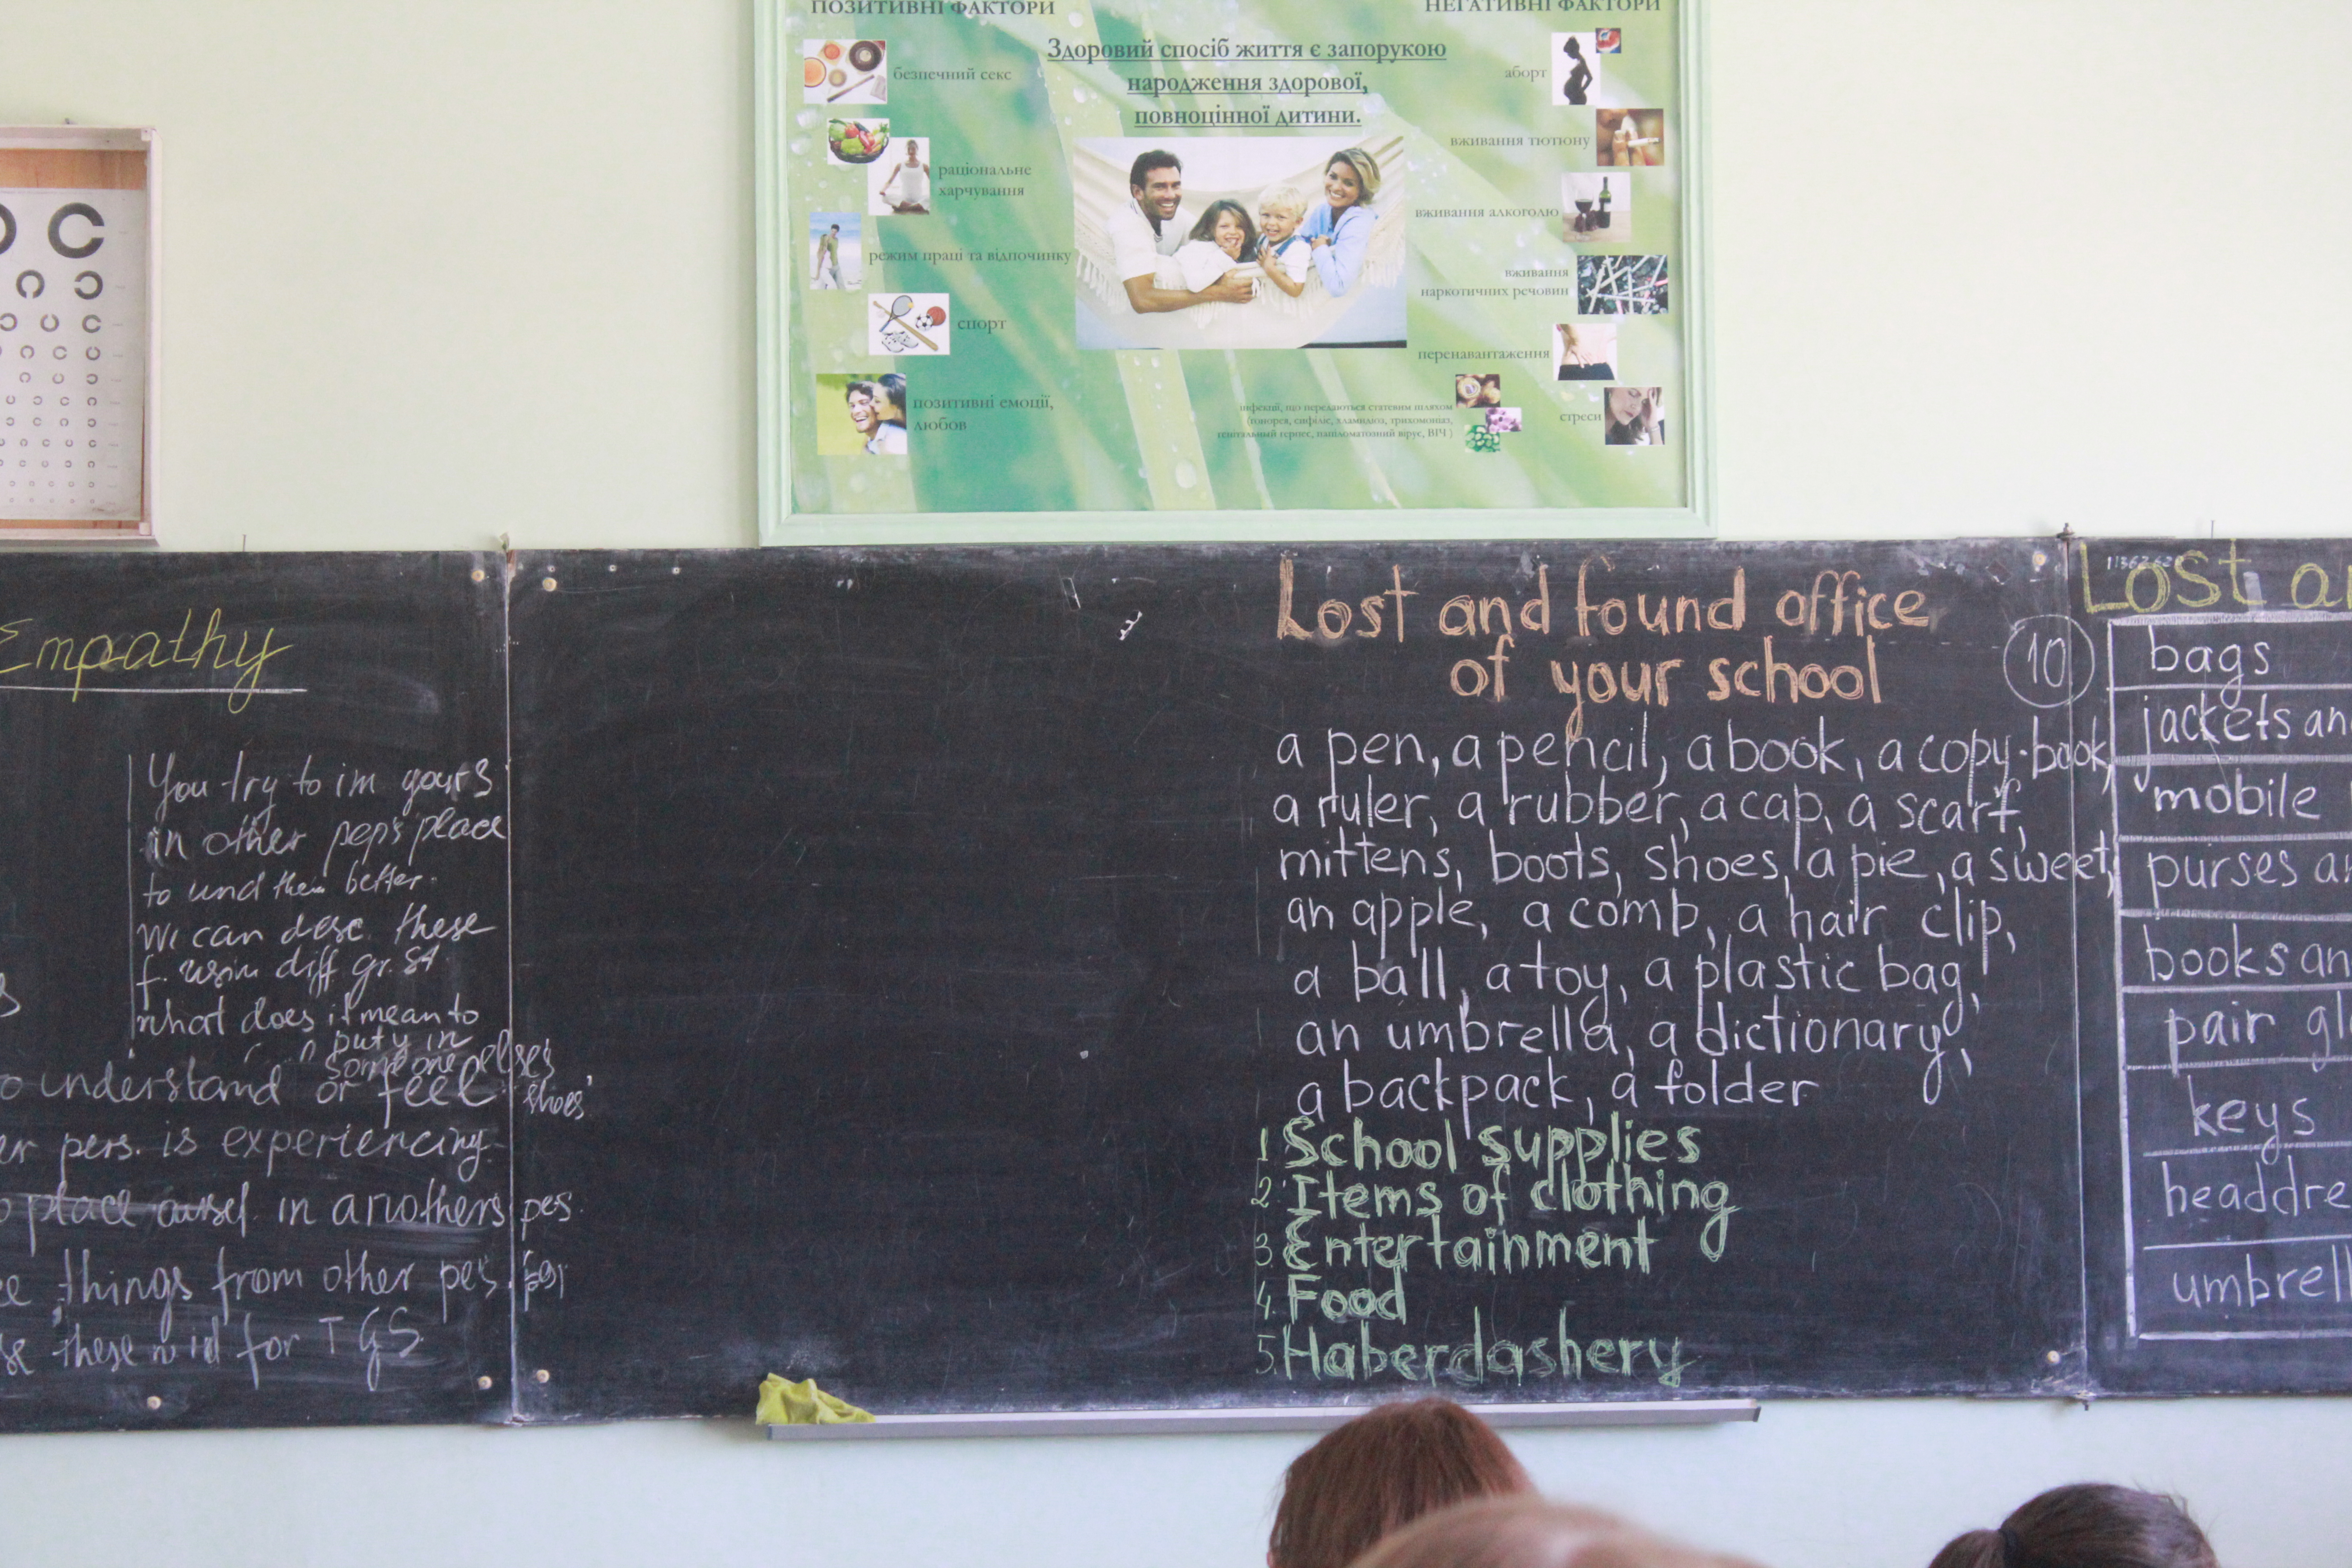 ПОЗИТИВНІ ФАКТОРИ
НЕГАТИВНІ ФАКТОРИ
Здоровий спосіб життя є запорукою
народження здорової,
повноцінної дитини.
безпечний секс
раціональне
харчування
режим праці та відпочинку
спорт
позитивні емоції,
любов
аборт
вживання тютюну
вживання алкоголю
вживання
наркотичних речовин
перенавантаження
стреси
інфекції, що передаються статевим шляхом
(гонорея, сифіліс, хламидіоз, трихомоніаз,
генітальный герпес, папіломатозний вірус, ВІЧ )
Empathy
You try to im yours
in other pep's place
to und them better.
We can desc. these
f. usin diff gr. St.
what does it mean to
put y in
someone else's
shoes'
o understand or feel
er pers. is experiencing.
o place ousel. in anothers pes.
e things from other pes.
se these w id for T G S.
Lost and found office
of your school
10
a pen, a pencil, a book, a copy-book,
a ruler, a rubber, a cap, a scarf,
mittens, boots, shoes, a pie, a sweet,
an apple, a comb, a hair clip,
a ball, a toy, a plastic bag,
an umbrella, a dictionary,
a backpack, a folder
1 School supplies
2. Items of clothing
3 Entertainment
4. Food
5. Haberdashery
Lost a
bags
jackets an
mobile
purses a
books an
pair gl
keys
headdre
umbrell